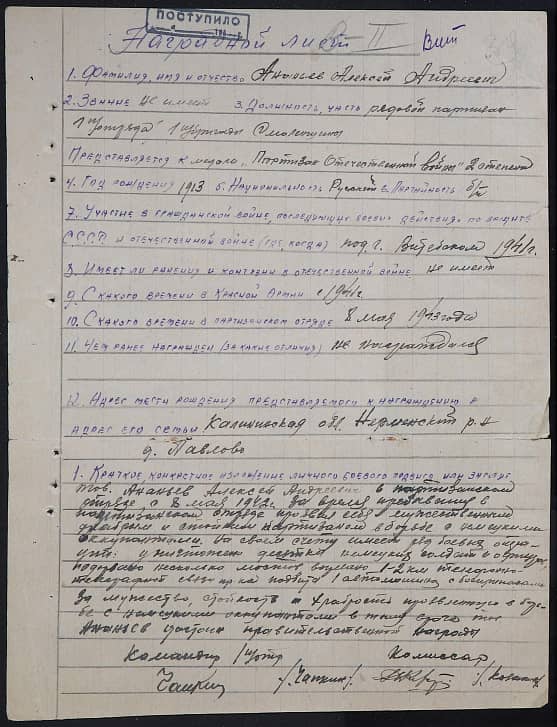 ПОСТУПИЛО
Наградной лист
1. Фамилия, имя и отчество Ананьев Алексей Андреевич
2. Звание не имеет 3. Должность, часть рядовой партизан
1 отряда 1 Смоленщины
Представляется к медали "Партизан Отечественной Войны" 2 степени
4. Год рождения 1913 5. Национальность Русский 6. Партийность б/п
7. Участие в гражданской войне, последующих боевых действиях по защите
СССР и отечественной войне (где, когда) под г. Витебском 1941 г.
8. Имеет ли ранения и контузии в отечественной войне не имеет
9. С какого времени в Красной Армии с 1941 г
10. С какого времени в партизанском отряде 8 мая года
11. Чем ранее награжден (за какие отличия) не награждался
12. Адрес места рождения представляемого к награждению и
адрес его семьи Калининская обл. р-н
д. Павлово
1. Краткое конкретное изложение личного боевого подвига или заслуг
тов. Ананьев Алексей Андреевич в партизанском
отряде с 8 мая 1942 г. За время пребывания в
партизанском отряде проявил себя мужественным
храбрым и стойким партизаном в борьбе с немецкими
оккупантами. На своем счету имеет ряд боевых
уничтожено десятки немецких солдат и офицеров
несколько мостов 1-2 км телефонно-
телеграфной связи 1 автомашина с
За мужество, стойкость и храбрость проявленную в борь-
бе с немецкими оккупантами в тылу врага тов.
Ананьев достоин правительственной награды
Командир 1 отр Комиссар
/Чапкин/